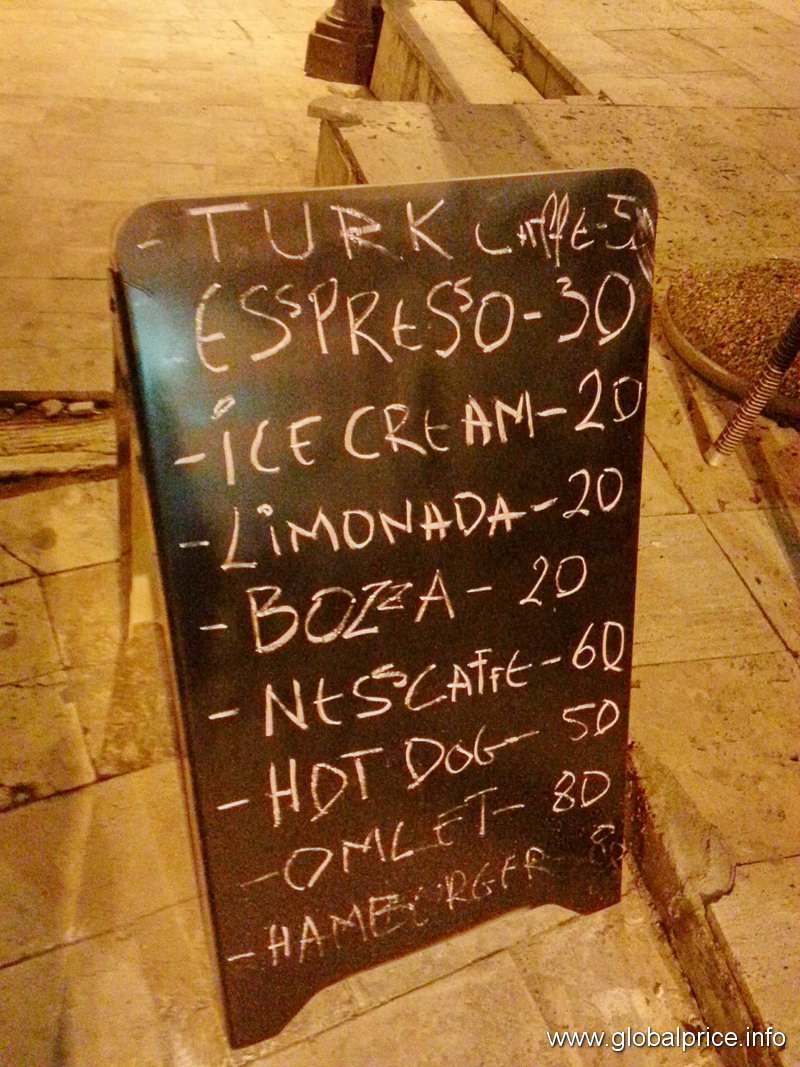 - TURK CAFFE - 50
ESSPRESSO - 30
- İCE CREAM - 20
- LİMONADA - 20
- BOZZA - 20
- NESSCAFFE - 60
- HOT DOG - 50
- OMLET - 80
- HAMBURGER - 80
www.globalprice.info